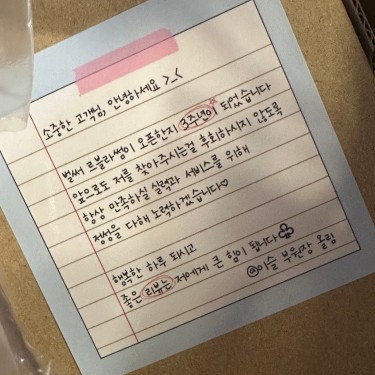 소중한 고객님, 안녕하세요 >_<
벌써 르블라썸이 오픈한지 3주년이 되었습니다
앞으로도 저를 찾아주시는걸 후회하시지 않도록
항상 만족하실 실력과 서비스를 위해
정성을 다해 노력하겠습니다♡
행복한 하루 되시고
좋은 리뷰는 저에게 큰 힘이 됩니다
@이슬 부원장 올림